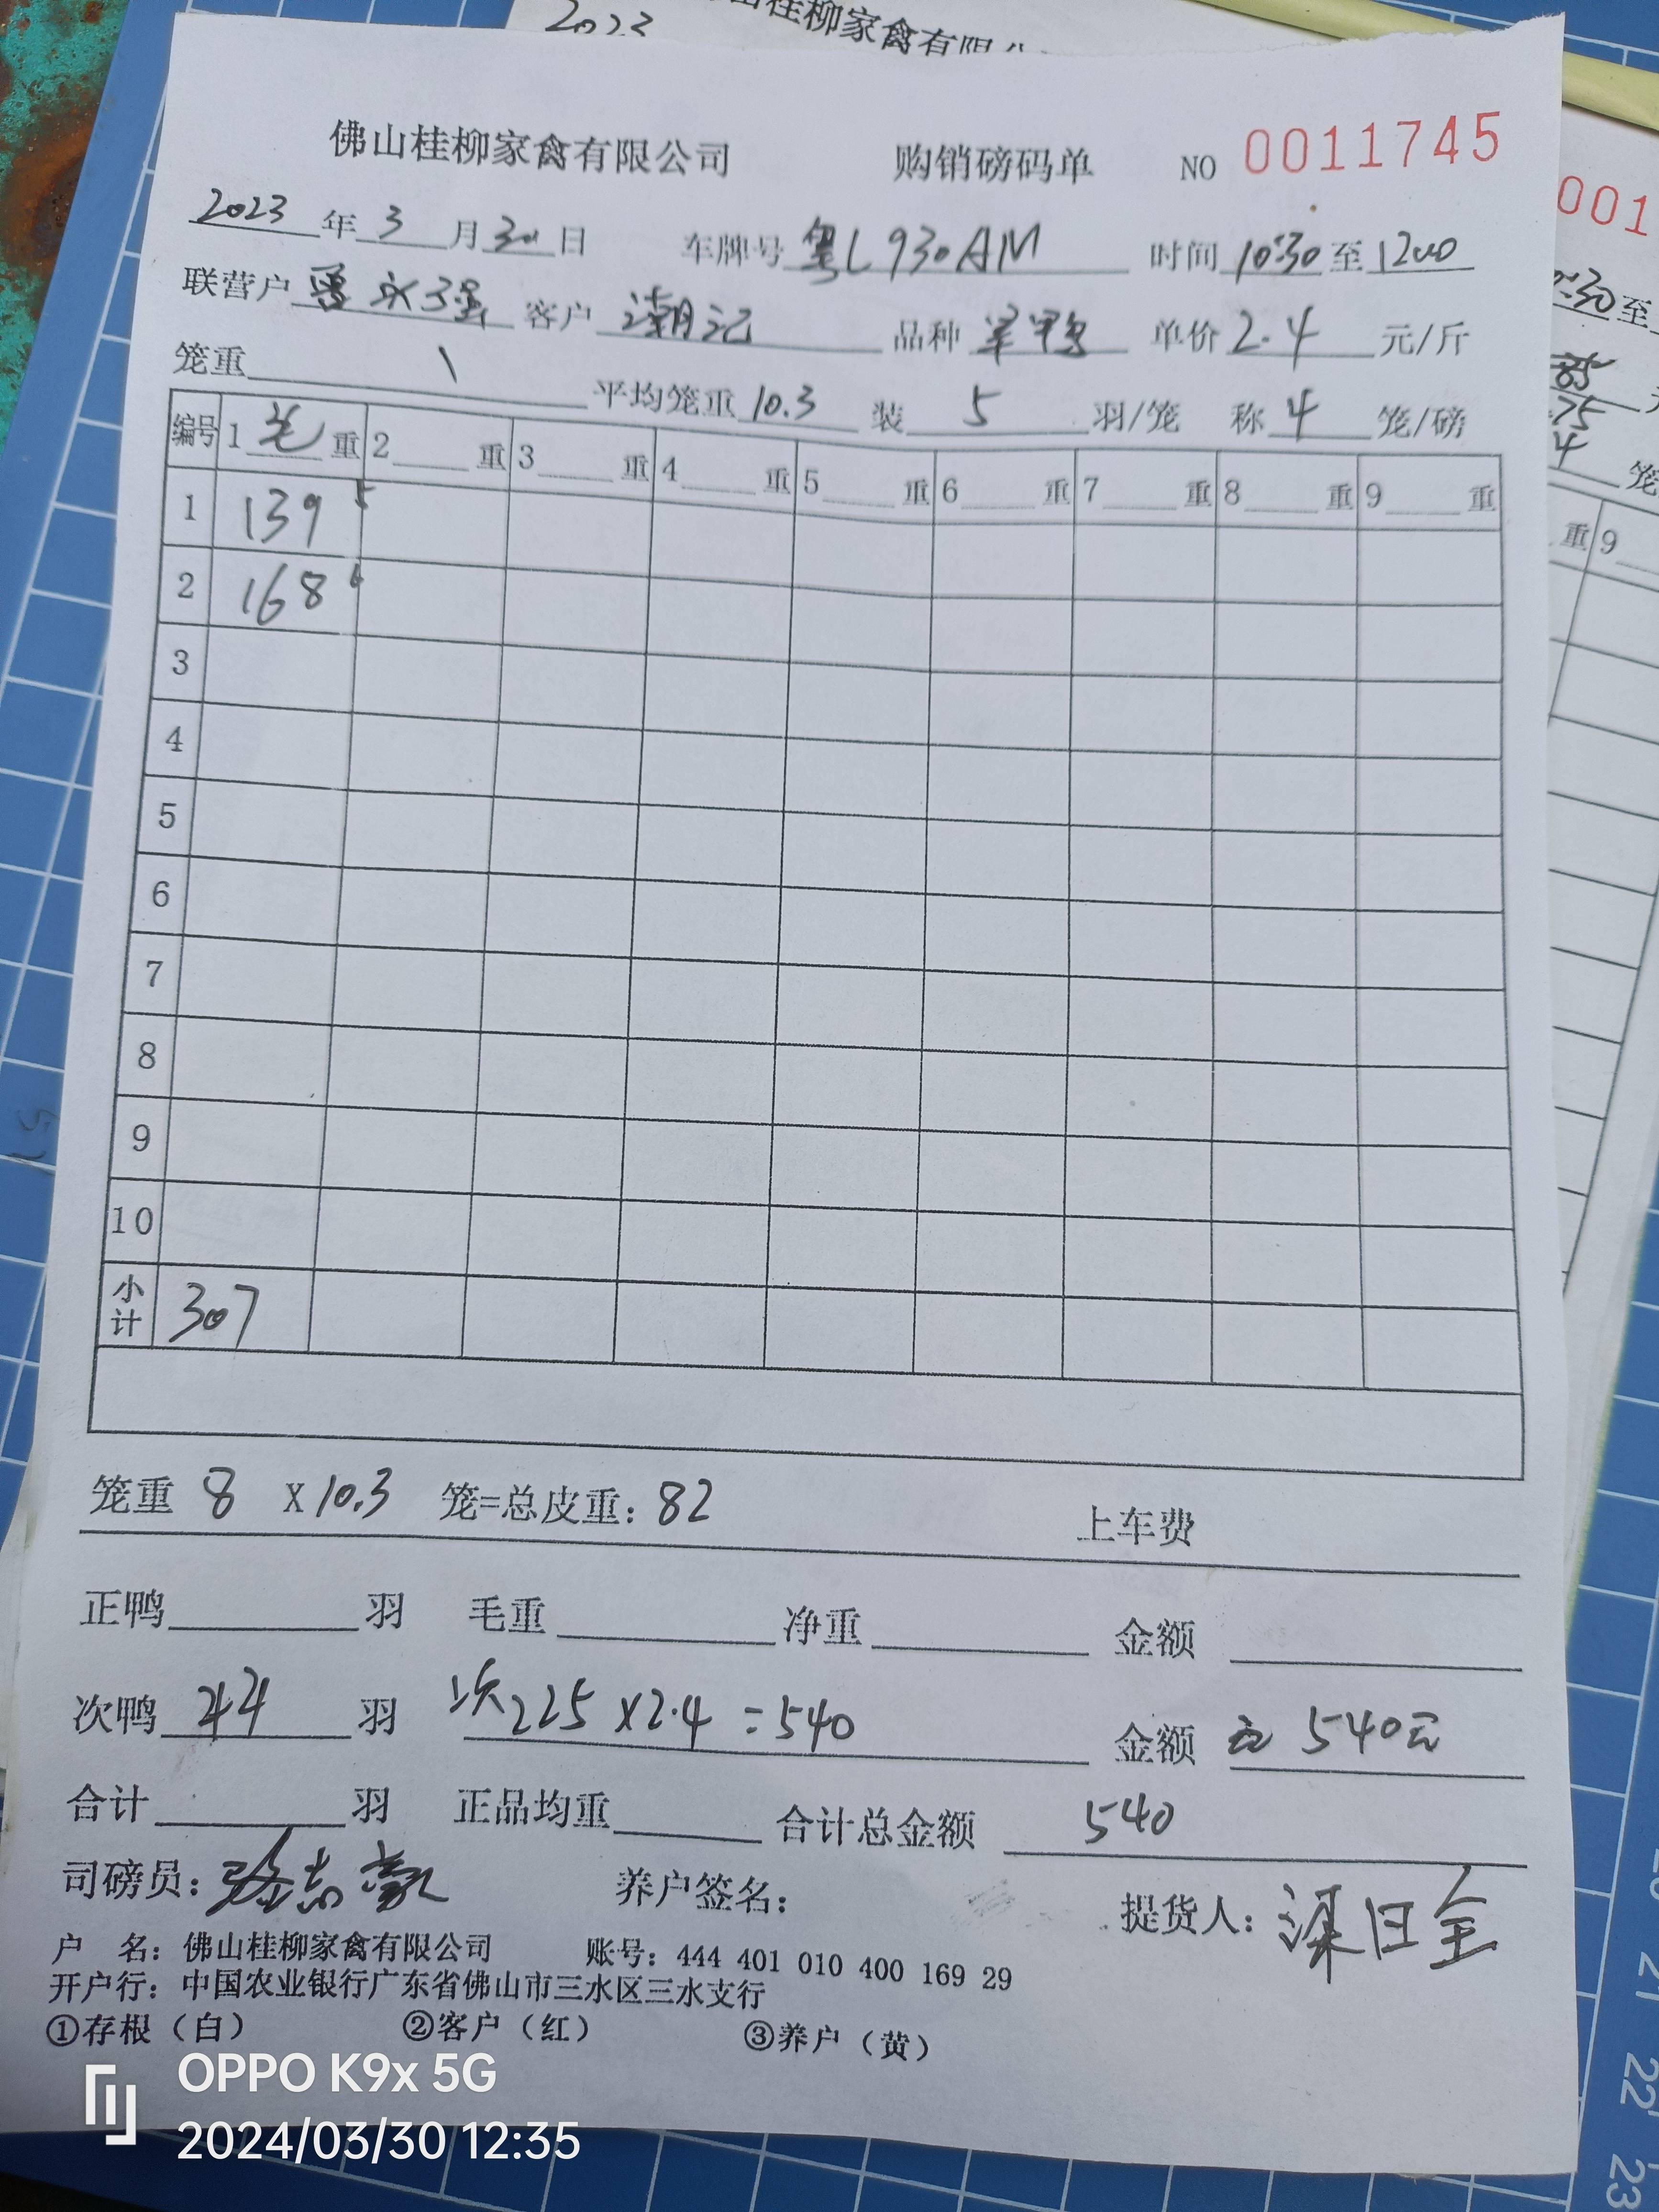 2023
桂柳家禽有限公
佛山桂柳家禽有限公司 购销磅码单 NO 0011745
2023 年 3 月 30 日 车牌号 粤L930AM 时间 10:30 至 1200
联营户 曾永强 客户 潮记 品种 单价 2.4 元/斤
笼重 \ 平均笼重 10.3 装 5 羽/笼 称 4 笼/磅
编号 1 毛 重 2 重 3 重 4 重 5 重 6 重 7 重 8 重 9 重
1 139 5
2 168 6
3
4
5
6
7
8
9
10
小计 307
笼重 8 X 10.3 笼=总皮重: 82 上车费
正鸭 羽 毛重 净重 金额
次鸭 44 羽 次225 x2.4 =540 金额 540元
合计 羽 正品均重 合计总金额 540
司磅员: 骆志豪 养户签名: 提货人: 日全
户 名: 佛山桂柳家禽有限公司 账号: 444 401 010 400 169 29
开户行: 中国农业银行广东省佛山市三水区三水支行
①存根（白） ②客户（红） ③养户（黄）
OPPO K9x 5G
2024/03/30 12:35
001
:30 至
85
75
4 笼
重 9
21
22
23